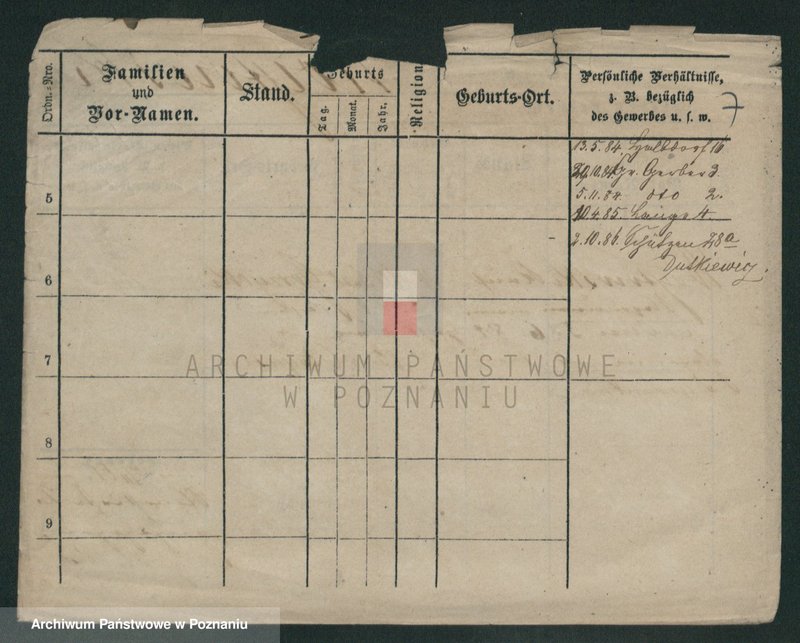 Ordn.-Nro.
Familien
und
Vor-Namen.
Stand.
Geburts
Tag.
Monat.
Jahr.
Religion
Geburts-Ort.
Persönliche Verhältnisse,
z. B. bezüglich
des Gewerbes u. s. w.
7
13.5.84. Halbdorf 16
20.10.84. Gr. Gerber 3.
5.11.84. dto 2.
10.4.85. Lange 4.
2.10.86. Schützen 28a
Dutkiewicz.
5
6
7
8
9
ARCHIWUM PAŃSTWOWE
W POZNANIU
Archiwum Państwowe w Poznaniu